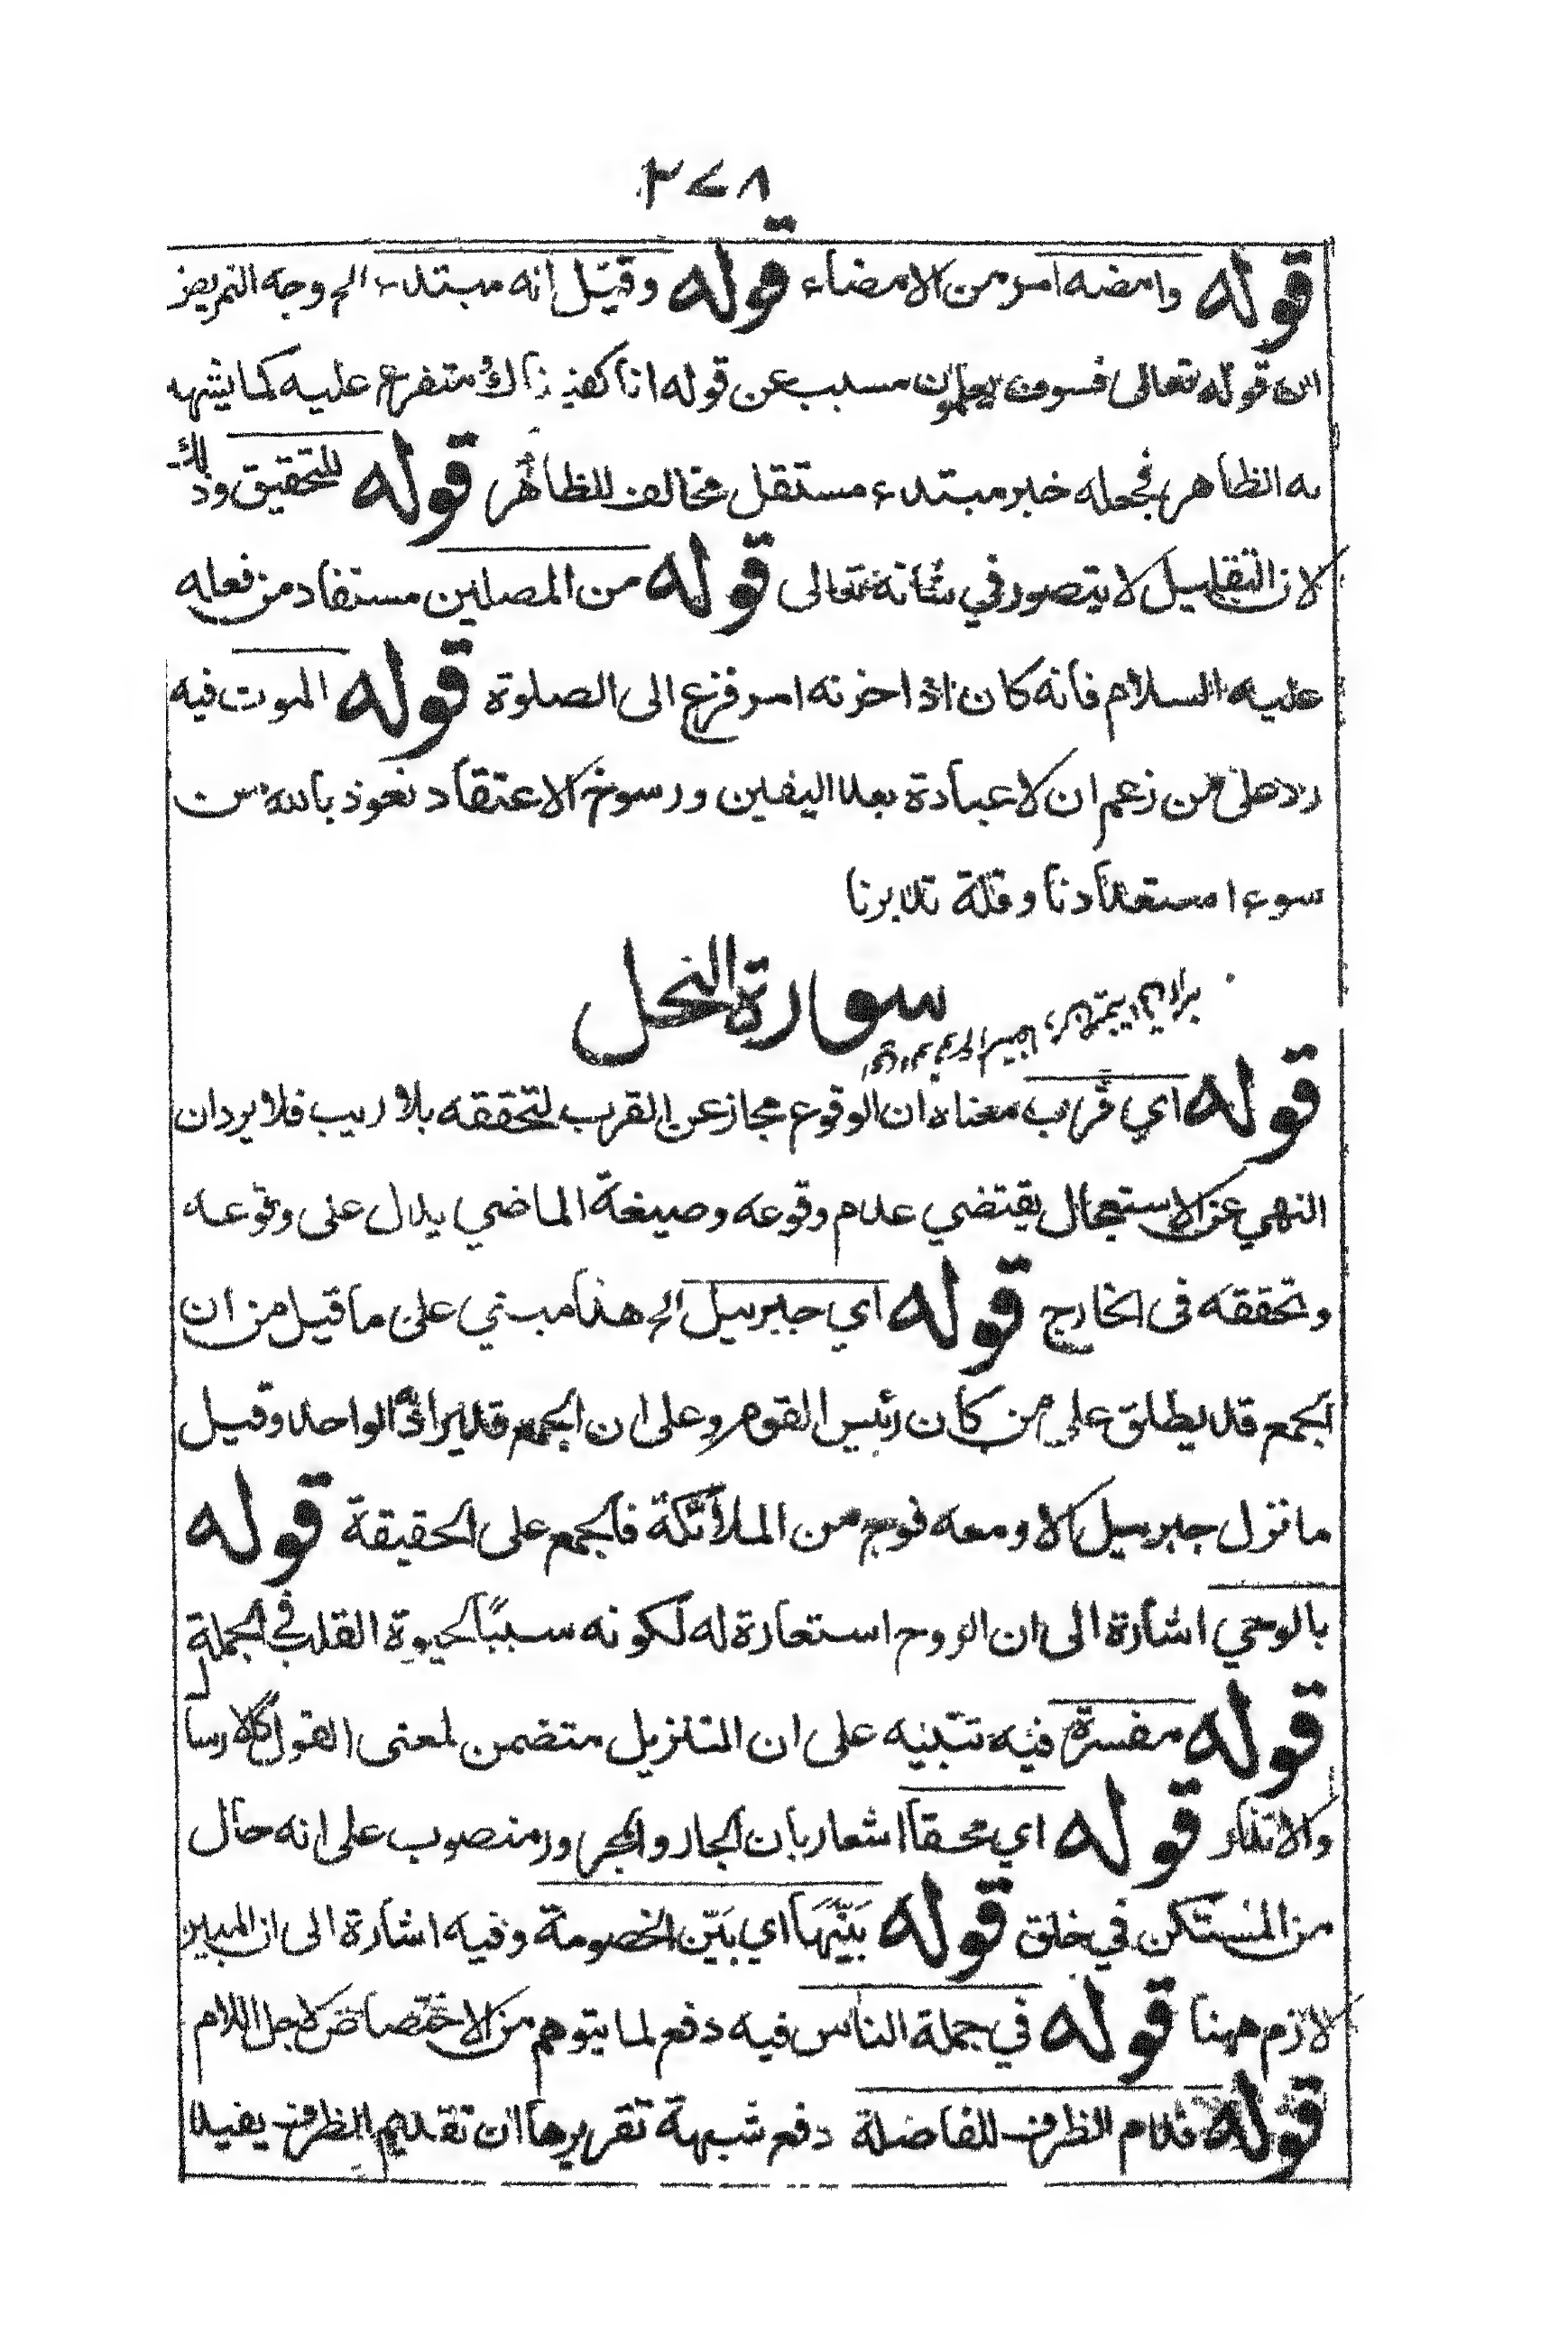 ٣٧٨
قوله وامضه امر من الامضاء قوله وقيل انه مبتدء الخ وجه التمريض
ان قوله تعالى فسوف يعلمون مسبب عن قوله انا كفيناك متفرع عليه كما يشهد
به الظاهر فجعله خبر مبتدء مستقل مخالف للظاهر قوله للتحقيق وذلك
لان التقليل لا يتصور في شانه تعالى قوله من المصلين مستفاد من فعله
عليه السلام فانه كان اذا حزنه امر فزع الى الصلوة قوله الموت فيه
رد على من زعم ان لا عبادة بعد اليقين ورسوخ الاعتقاد نعوذ بالله من
سوء استعدادنا وقلة تدابرنا
سورة النحل
قوله اي قرب معناه ان الوقوع مجاز عن القرب لتحققه بلا ريب فلا يرد ان
النهي عن الاستعجال يقتضي عدم وقوعه وصيغة الماضي يدل على وقوعه
وتحققه فى الخارج قوله اي جبرئيل الخ هذا مبني على ما قيل من ان
الجمع قد يطلق على من كان رئيس القوم وعلى ان الجمع قد يراد به الواحد وقيل
ما نزل جبرئيل الا ومعه فوج من الملائكة فالجمع على الحقيقة قوله
بالوحي اشارة الى ان الروح استعارة له لكونه سببًا لحيوة القلب في الجملة
قوله مفسرة فيه تنبيه على ان التنزيل متضمن لمعنى القول كالارسال
والانذار قوله اي محقا اشعار بان الجار والمجرور منصوب على انه حال
من المستكن في خلق قوله بَيِّنُهَا اي بَيّن الخصومة وفيه اشارة الى ان المبين
لازم ههنا قوله في جملة الناس فيه دفع لما يتوهم من الاختصاص لاجل اللام
قوله فقدم الظرف للفاضلة دفع شبهة تقريرها ان تقديم الظرف يفيد